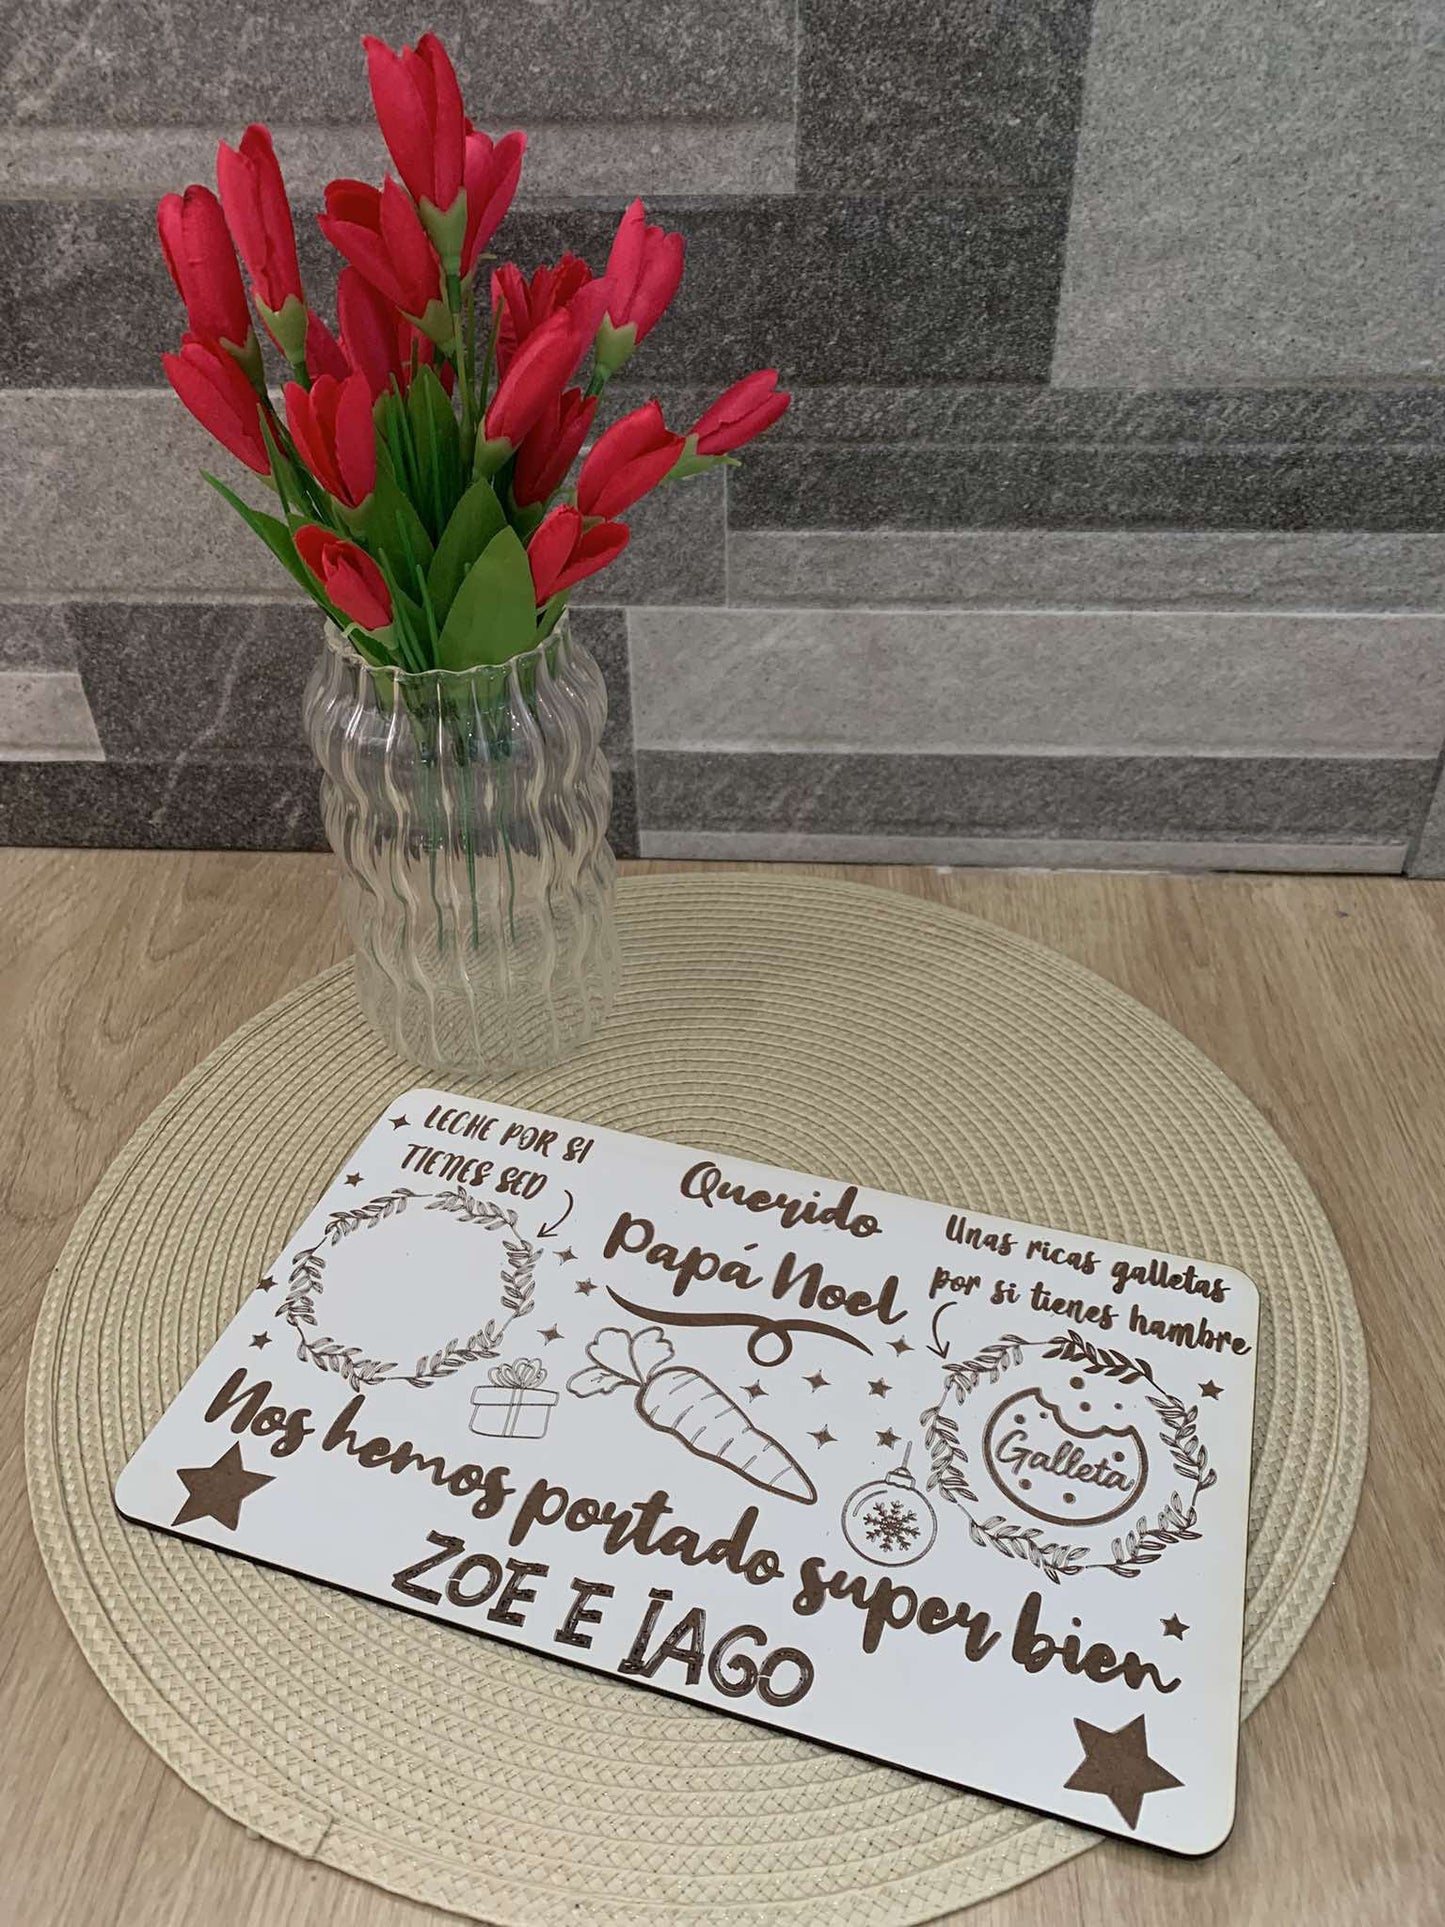 LECHE POR SI
TIENES SED
Querido
Papá Noel
Unas ricas galletas
por si tienes hambre
Galleta
Nos hemos portado super bien
ZOE E IAGO